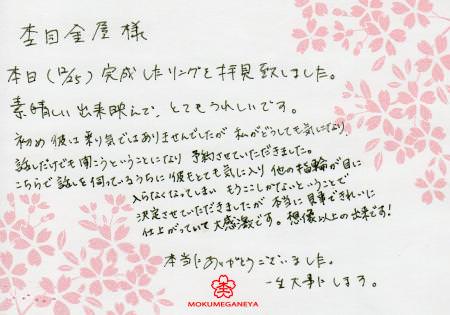 杢目金屋様
本日(12/25)完成したリングを拝見致しました。
素晴しい出来映えで、とてもうれしいです。
初め彼は乗り気ではありませんでしたが 私がどうしても気になり、
話しだけでも聞こうということになり 予約させていただきました。
こちらで話しを伺っているうちに彼もとても気に入り 他の指輪が目に
入らなくなってしまい もうここしかないということで
決定させていただきましたが 本当に見事できれいに
仕上がっていて大感激です。想像以上の出来です!
本当にありがとうございました。
一生大事にします。
MOKUMEGANEYA